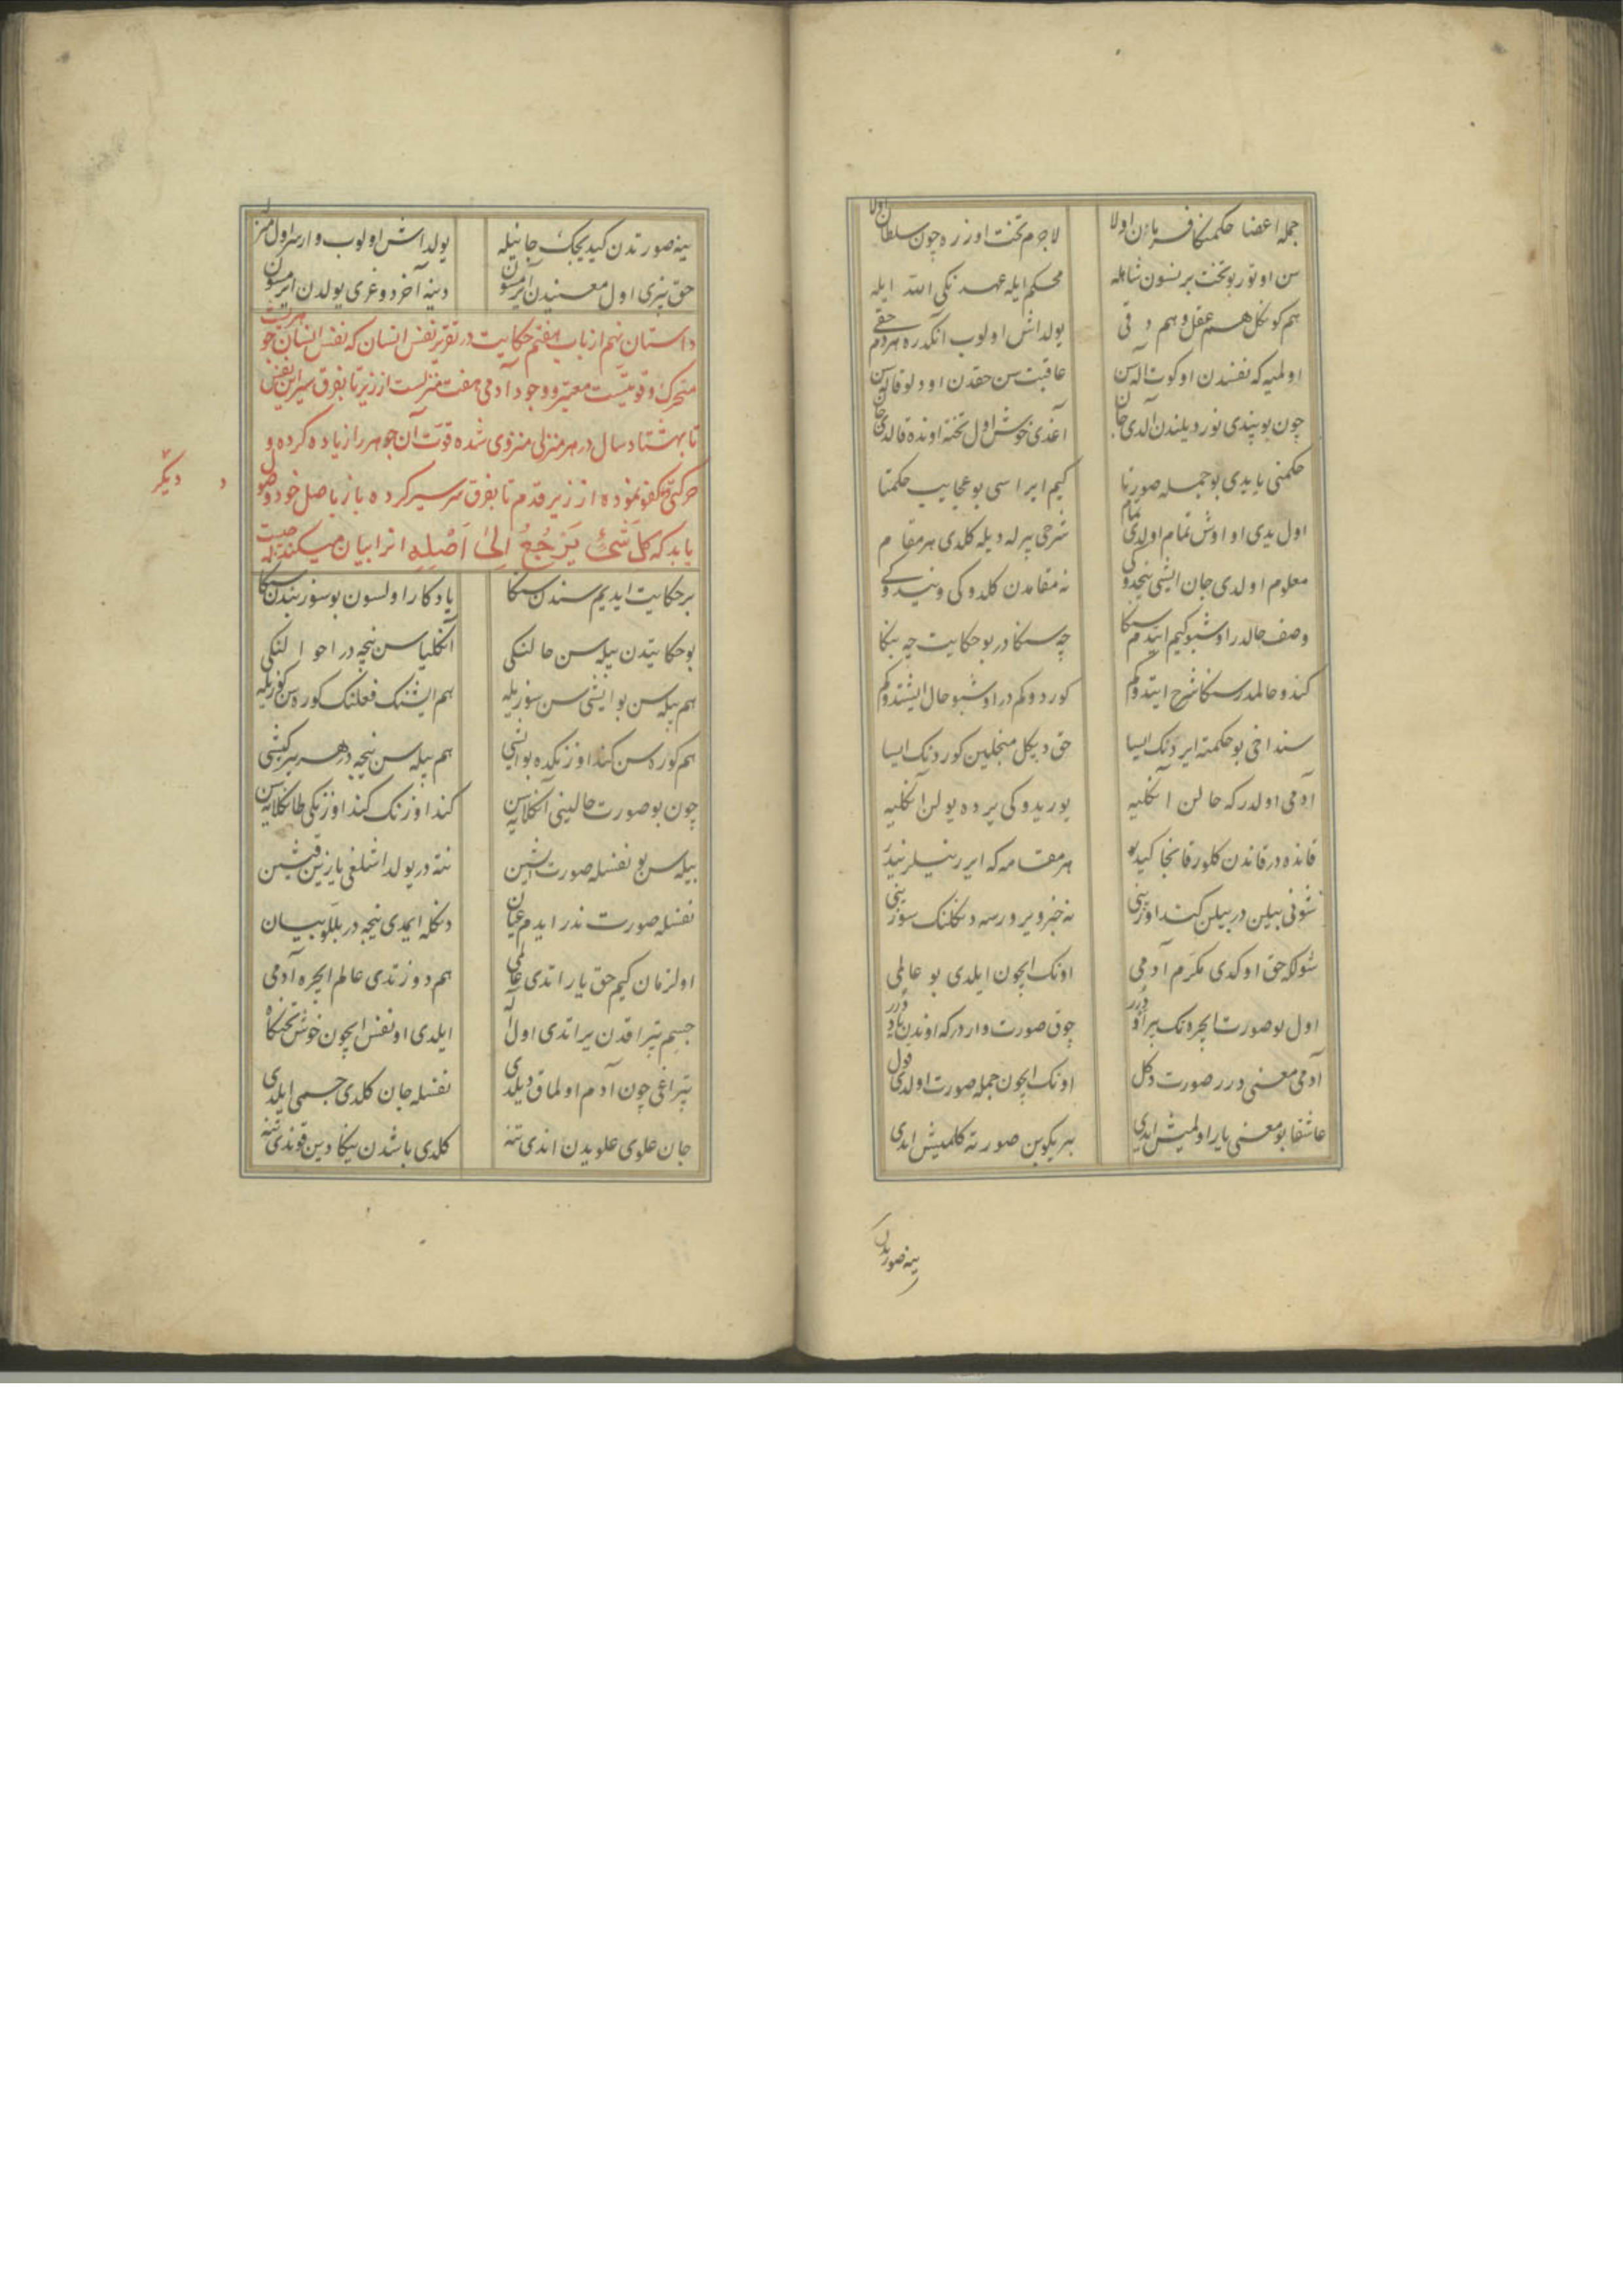 جمله اعضا حکمنکا فرمان اولا لاجرم تخت اوزره چون سلطان اولا
سن اوتور بو تخت برنسون شاهله محکم ایله عهدنکی الله ایله
هم کونکل هم عقل و هم دقی یولداش اولوب انکدره هردم حقی
اولمیه که نفسدن اوکوت آله سن عاقبت سن حقدن اودلو قاله سن
چون بو پندی نور دیلندن آلدی جان آغدی خوش اول تخته اونده قالدی جان
حکمنی یایدی بو جمله صورتا کیم ایراسی بو عجایب حکمتا
اول یدی او اوش تمام اولدی تمام شرحی بیرله دیله کلدی هر مقام
معلوم اولدی جان ایشی نیجدوکی نه مقامدن کلدوکی و نیدوکی
وصف حالدر اوشبو کیم ایتدم سنکا چه سنکادر بو حکایت چه بنکا
کندو حالمدر سنکا شرح ایتدوکم کوردوکمدر اوشبو حال ایشتدوکم
سنداخی بو حکمته ایردنک ایسا حق دیکل منجلین کوردنک ایسا
آدمی اولدر که حالن انکلیه یوریدوکی یرده یولن انکلیه
قانده در قاندن کلور قانجا کیدر هر مقامه که ایررنیلر نیدر
شونی بیلن در بیلن کندوزینی نه خبر ویرورسه دنکلنک سوزینی
شولکه حق اوکدی مکرم آدمی اونک ایچون ایلدی بو عالمی
اول بو صورت ایچره تک بر آدر چوق صورت وار درکه اوندن
آدمی معنی درر صورت دکل اونک ایچون جمله صورت اولدی قول
عاشقا بو معنی یار اولمیش ایدی بیریکوبن صورته کلمیش ایدی
ینه صورتدن
ینه صورتدن کیدیجک جانیله یولداش اولوب وارر اول
حق بیزی اول معنیدن آیرمسون دینه آخر دوغری یولدن ایرمسون
داستان نهم از باب هفتم حکایت در تقریر نفس انسان که نفس انسان جوهریست
متحرک و قوتیست معتبر و وجود آدمی هفت منزلست از زیر تا بفرق سر این نفس
تا بهشتاد سال در هر منزلی منزوی شده قوت آن جوهر را زیاده کرده و
حرکتی نموده از زیر قدم تا بفرق سر سیر کرده باز باصل خود وصول
یابد که کل شیئ یرجع الی اصله انرا بیان میکند
دیکر
بر حکایت ایدیم سندن سنکا یادکار اولسون بو سوز بندن سنکا
بو حکایتدن بیله سن حالنکی انکلیاسن نیجه در احوالنکی
هم بیله سن بو ایشی سن سوزیله هم ایشنک فعلنک کوره سن کوزیله
هم کوره سن کندوزنکده بو ایشی هم بیله سن نیجه در هر بر کیشی
چون بو صورت حالینی انکلایه سن کندوزنک کندوزنکی طانکلایه سن
بیله سن بو نفسله صورت ایشین نته در یولداشلغی یازین قیشین
نفسله صورت ندر ایدم عیان دنکله ایمدی نیجه در بللو بیان
اولزمان کیم حق یاراتدی عالمی هم دوزتدی عالم ایچره آدمی
جسم تپراقدن یراتدی اول اله ایلدی او نفس ایچون خوش تختکاه
تپراغی چون آدم اولماق دیلدی نفسله جان کلدی جسمی ایلدی
جان علوی علویدن اندی تنه کلدی باشدن بیکا دین قوندی تنه